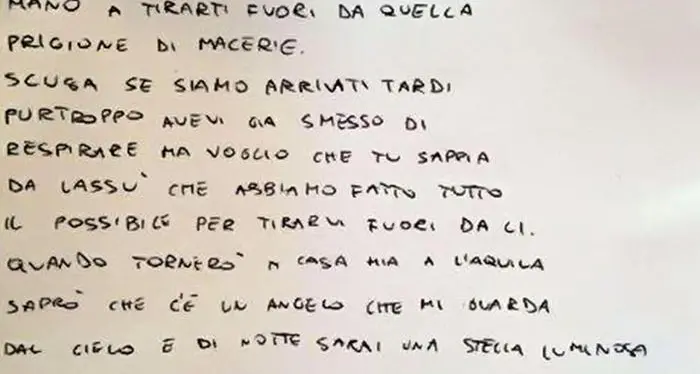 MANO A TIRARTI FUORI DA QUELLA
PRIGIONE DI MACERIE.
SCUSA SE SIAMO ARRIVATI TARDI
PURTROPPO AVEVI GIA SMESSO DI
RESPIRARE MA VOGLIO CHE TU SAPPIA
DA LASSU' CHE ABBIAMO FATTO TUTTO
IL POSSIBILE PER TIRARVI FUORI DA LI.
QUANDO TORNERO' A CASA MIA A L'AQUILA
SAPRO' CHE C'È UN ANGELO CHE MI GUARDA
DAL CIELO E DI NOTTE SARAI UNA STELLA LUMINOSA